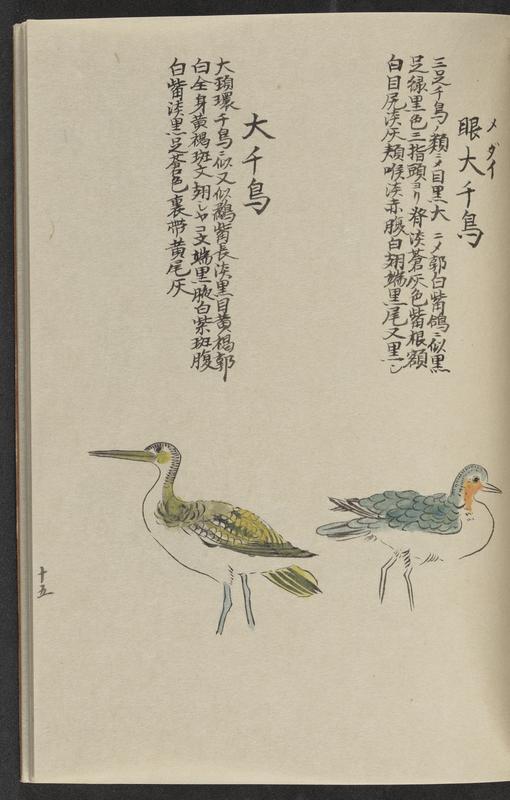 メダイ
眼大千鳥
三足千鳥ノ類ニメ目黒大ニメ郭白觜鴿ニ似黒
足緑黒色三指頭ヨリ脊淡蒼灰色觜根額
白目尻淡灰頬喉淡赤腹白翅端黒尾又黒シ
大千鳥
大頚環千鳥ニ似又似鷸觜長淡黒目黄褐郭
白全身黄褐斑文翅シヤコ文端黒腋白紫斑腹
白觜淡黒足蒼色裏帶黄尾灰
十五